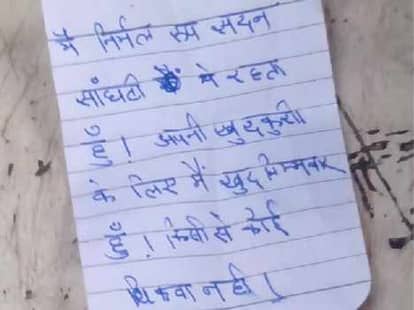 मैं निर्मल एम सदन
सांघटी में रहता
हूँ। अपनी खुदकुशी
के लिए मैं खुद जिम्मेवार
हूँ। किसी से कोई
शिकवा नहीं।